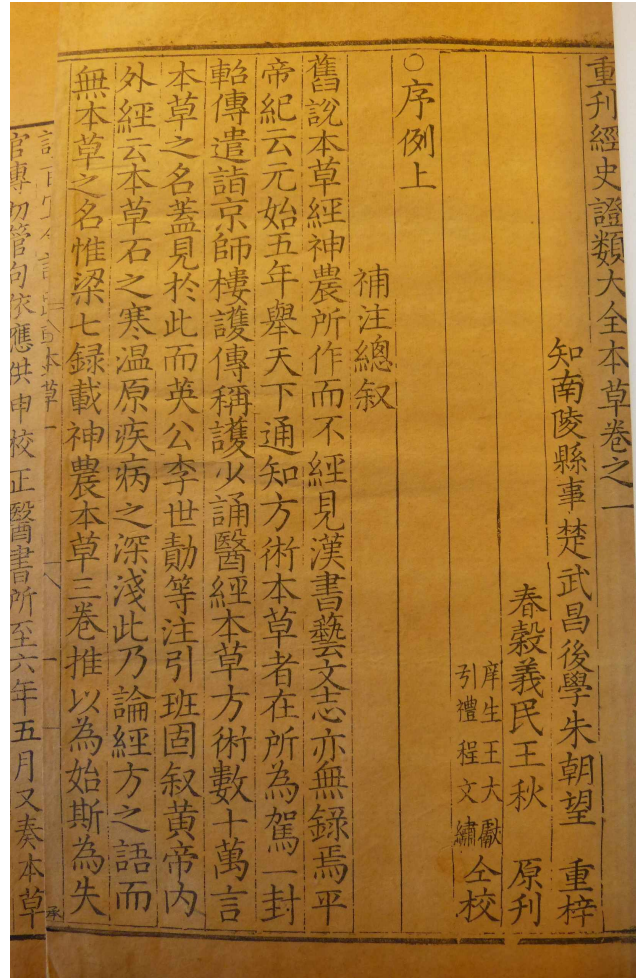 重刊經史證類大全本草卷之一
知南陵縣事楚武昌後學朱朝望 重梓
春穀義民王秋 原刊
庠生王大獻
引禮程文繡 仝校
○序例上
補注總叙
舊說本草經神農所作而不經見漢書藝文志亦無錄焉平
帝紀云元始五年舉天下通知方術本草者在所為駕一封
軺傳遣詣京師樓護傳稱護少誦醫經本草方術數十萬言
本草之名蓋見於此而英公李世勣等注引班固叙黃帝内
外經云本草石之寒温原疾病之深淺此乃論經方之語而
無本草之名惟梁七録載神農本草三卷推以為始斯為失
承
本草
官專切管句依應供申校正醫書所至六年五月又奏本草